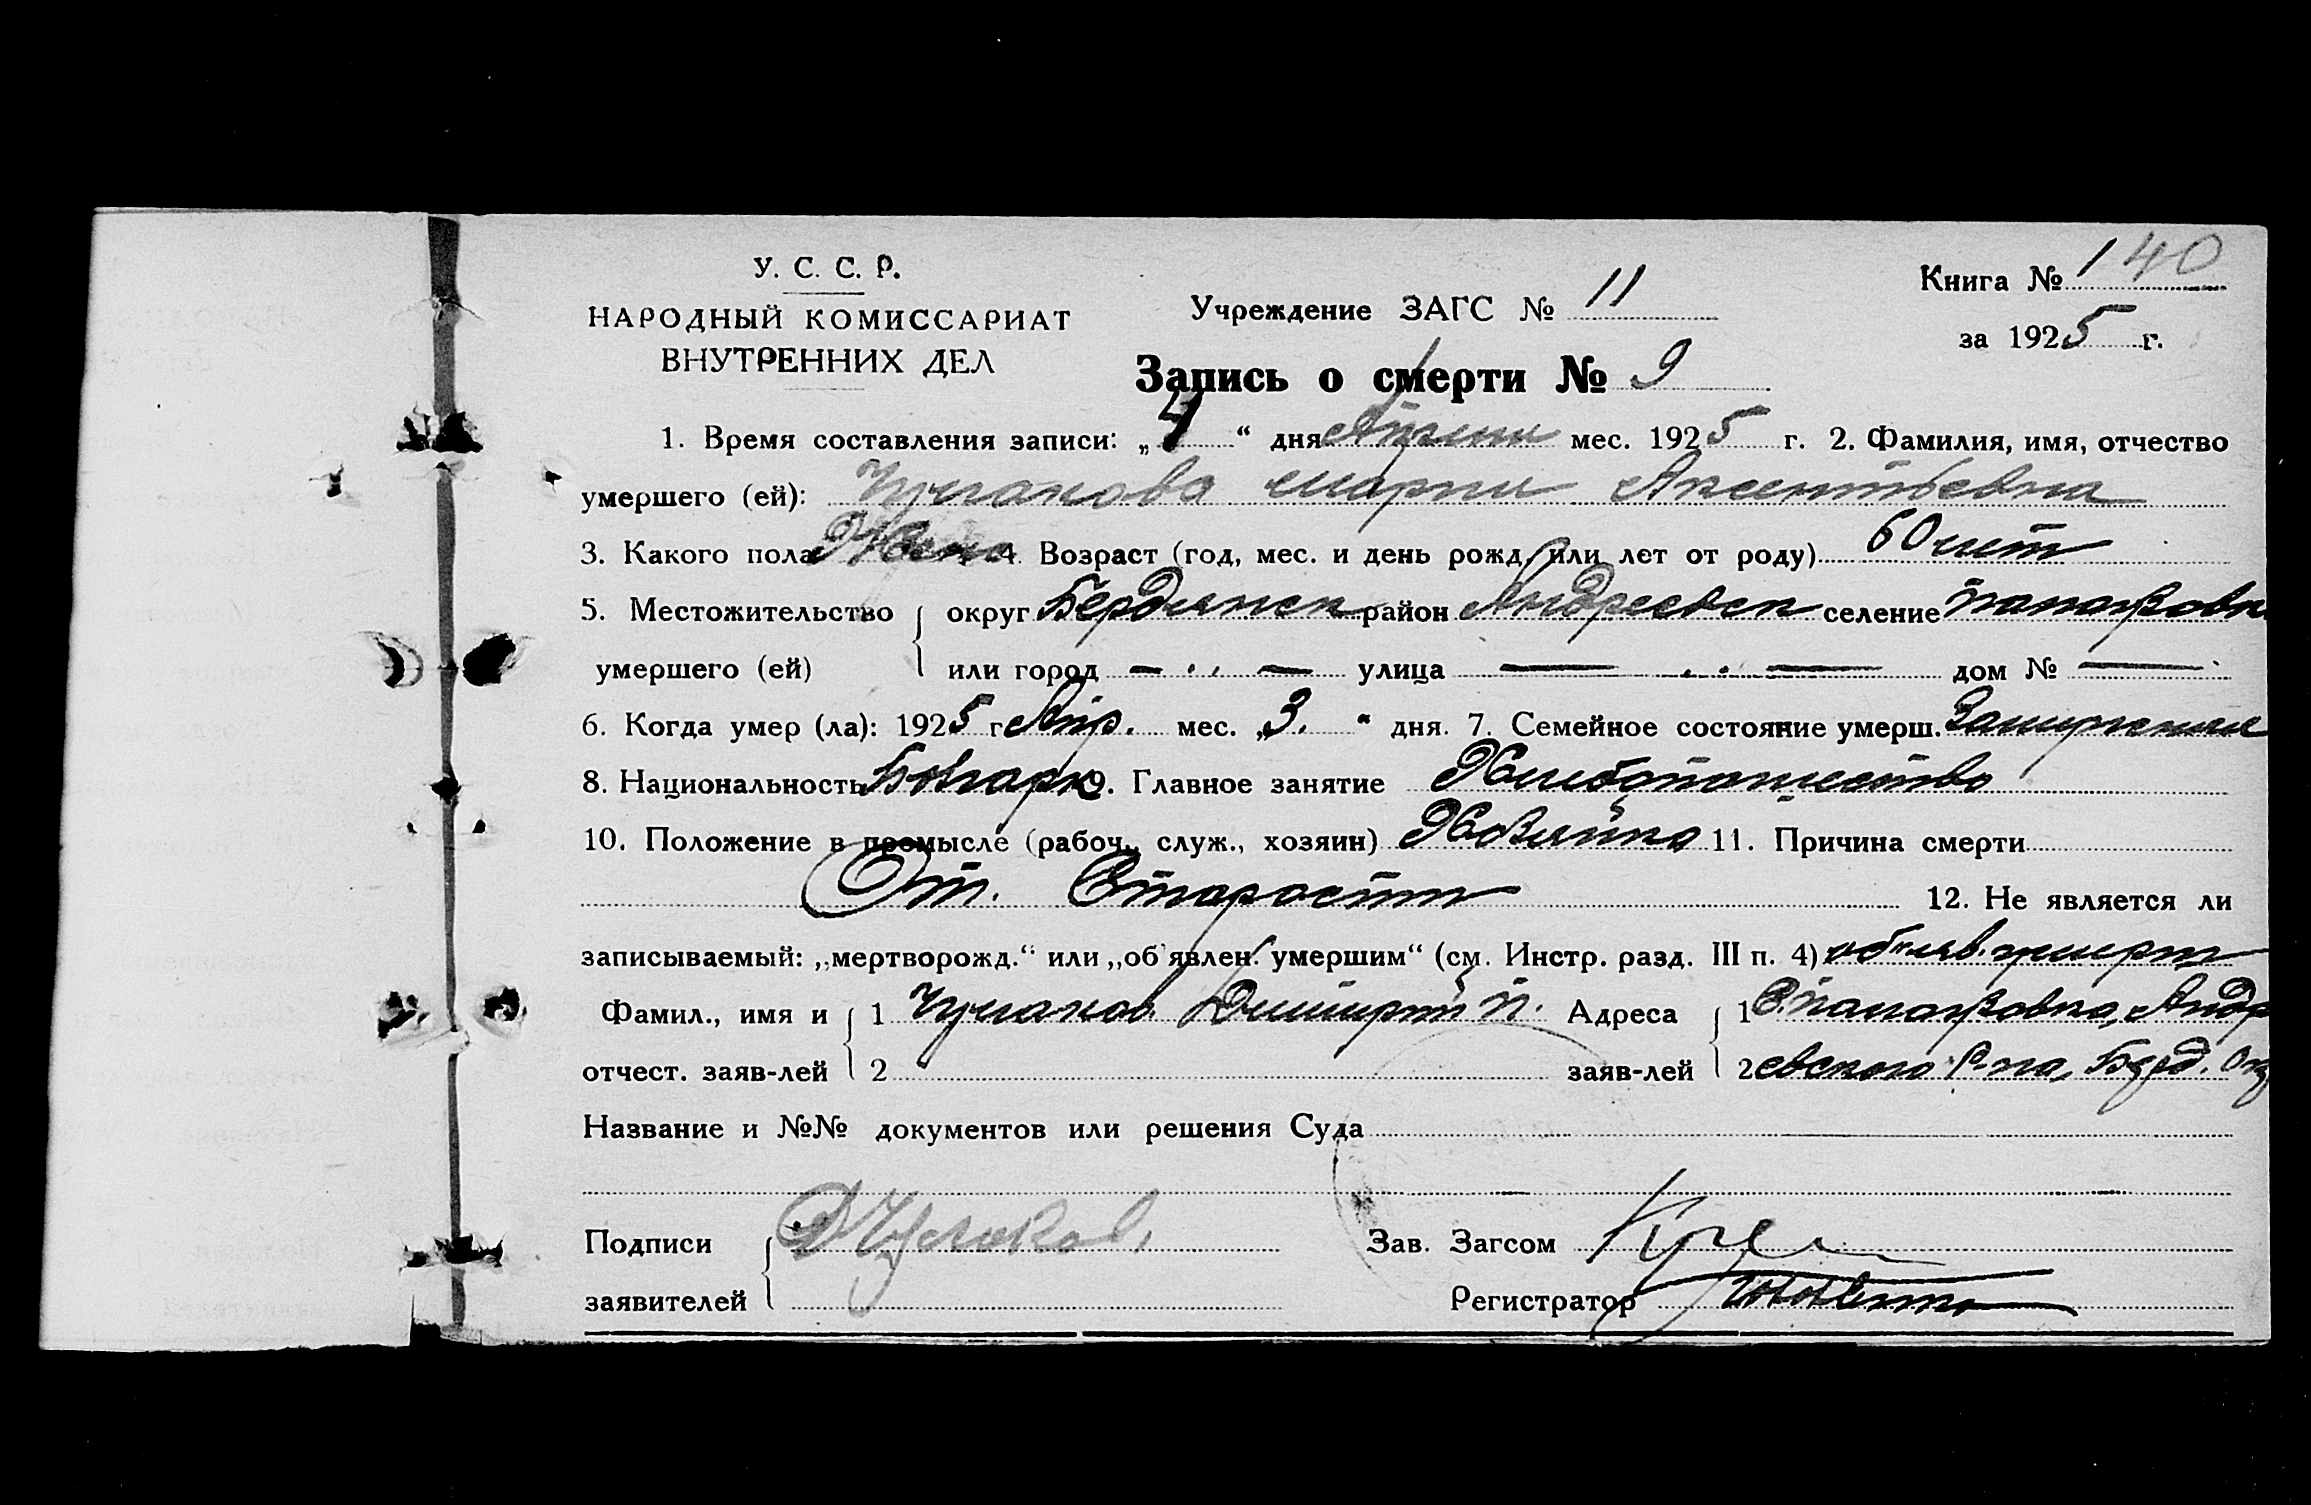 У. С. С. Р.
НАРОДНЫЙ КОМИССАРИАТ
ВНУТРЕННИХ ДЕЛ
Учреждение ЗАГС № 11
Книга № 1 40
за 1925 г.
Запись о смерти № 9
1. Время составления записи: „4“ дня Апреля мес. 1925 г. 2. Фамилия, имя, отчество
умершего (ей): Чулакова Мария Аксентьевна
3. Какого пола Женс. 4. Возраст (год, мес. и день рожд. или лет от роду) 60 лет
5. Местожительство округ Бердянск район Андреевск селение
умершего (ей) или город — „ — улица — „ — дом № —
6. Когда умер (ла): 1925 г Апр. мес. „3.“ дня. 7. Семейное состояние умерш. Замужняя
8. Национальность Болгарк. 9. Главное занятие Хлебопашество
10. Положение в промысле (рабоч., служ., хозяин) Хозяйка 11. Причина смерти
От. Старости 12. Не является ли
записываемый: „мертворожд.“ или „об'явлен. умершим“ (см. Инстр. разд. III п. 4) об'яв. умерш
Фамил., имя и 1 Чулаков Димитрий. Адреса 1 Андре
отчест. заяв-лей 2 заяв-лей 2 евского Р-на, Берд. Ок
Название и №№ документов или решения Суда
Подписи ДЧулаков. Зав. Загсом
заявителей Регистратор